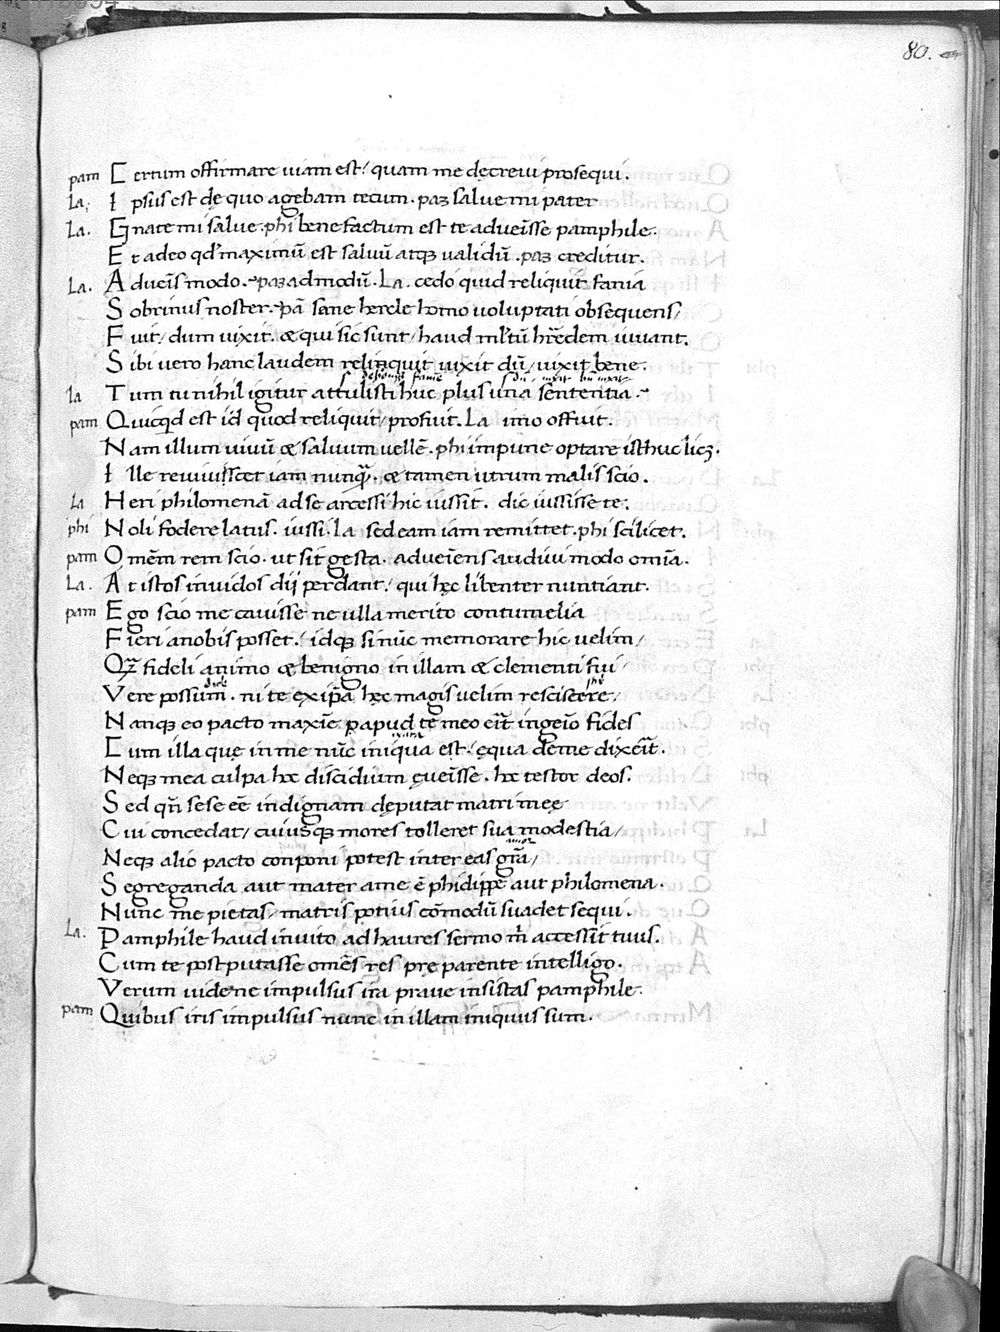 80.
pam Certum offirmare uiam est/ quam me dęcreui prosequi.
La. Ipsus est dę quo agebam tecum. pam salue mi pater
La. Gnate mi salue. phi bene factum est te aduēisse pamphile.
Et adeo qd' maximū est saluū atq; ualidū. pam creditur.
La. Adueīs modo. pam admodū. La. cedo quid reliquit fania
Sobrinus noster. pā sane hercle homo uoluptati obsequens/
Fuit/ dum uixit. & qui sic sunt/ haud ml'tū hr̄edem iuuant.
Sibi uero hanc laudem relinquit uixit dū/ uixit bene.
la Tum tu nihil igitur attulisti huc plus una sententia.
pam Quicqd est id quod reliquit/ profuit. La imo offuit.
Nam illum uiuū & saluum uellē. phi impune optare isthuc lic&.
Ille reuiuiscet iam nunq̄. & tamen utrum malis scio.
la Heri philomenā ad se arcessi hic iussit. dic iussisse te.
phi Noli fodere latus. iussi. la sed eam iam remittet. phi scilicet.
pam Omēm rem scio. ut sit gesta. adueīens audiui modo omīa.
La. At istos inuidos dij perdant/ qui hęc libenter nuntiant.
pam Ego scio me cauisse ne ulla merito contumelia
Fieri anobis posset. idq; si nūc memorare hic uelim/
Qz fideli animo & benigno in illam & clementi fui/
Vere possum. ni te exipā hęc magis uelim resciscere/
Nanq; eo pacto maxīe papud te meo erit ingeīo fides
Cum illa quę in me nūc iniqua est/ ęqua de me dixerit.
Neq; mea culpa hoc discidium ęueīsse. hoc testor deos.
Sed qn̄ sese eē indignam dęputat matri meę
Cui concedat/ cuiusq; mores tolleret sua modestia/
Neq; alio pacto conponi potest inter eas gr̄a/
Segreganda aut mater ame ē phidippe aut philomena.
Nunc me pietas/ matris potius cōmodū suadet sequi.
La. Pamphile haud inuito ad haures sermo m̄ accessit tuus.
Cum te post putasse omēs res prę parente intelligo.
Verum uide ne impulsus ira praue insistas pamphile.
pam Quibus iris impulsus nunc in illam iniquus sum.